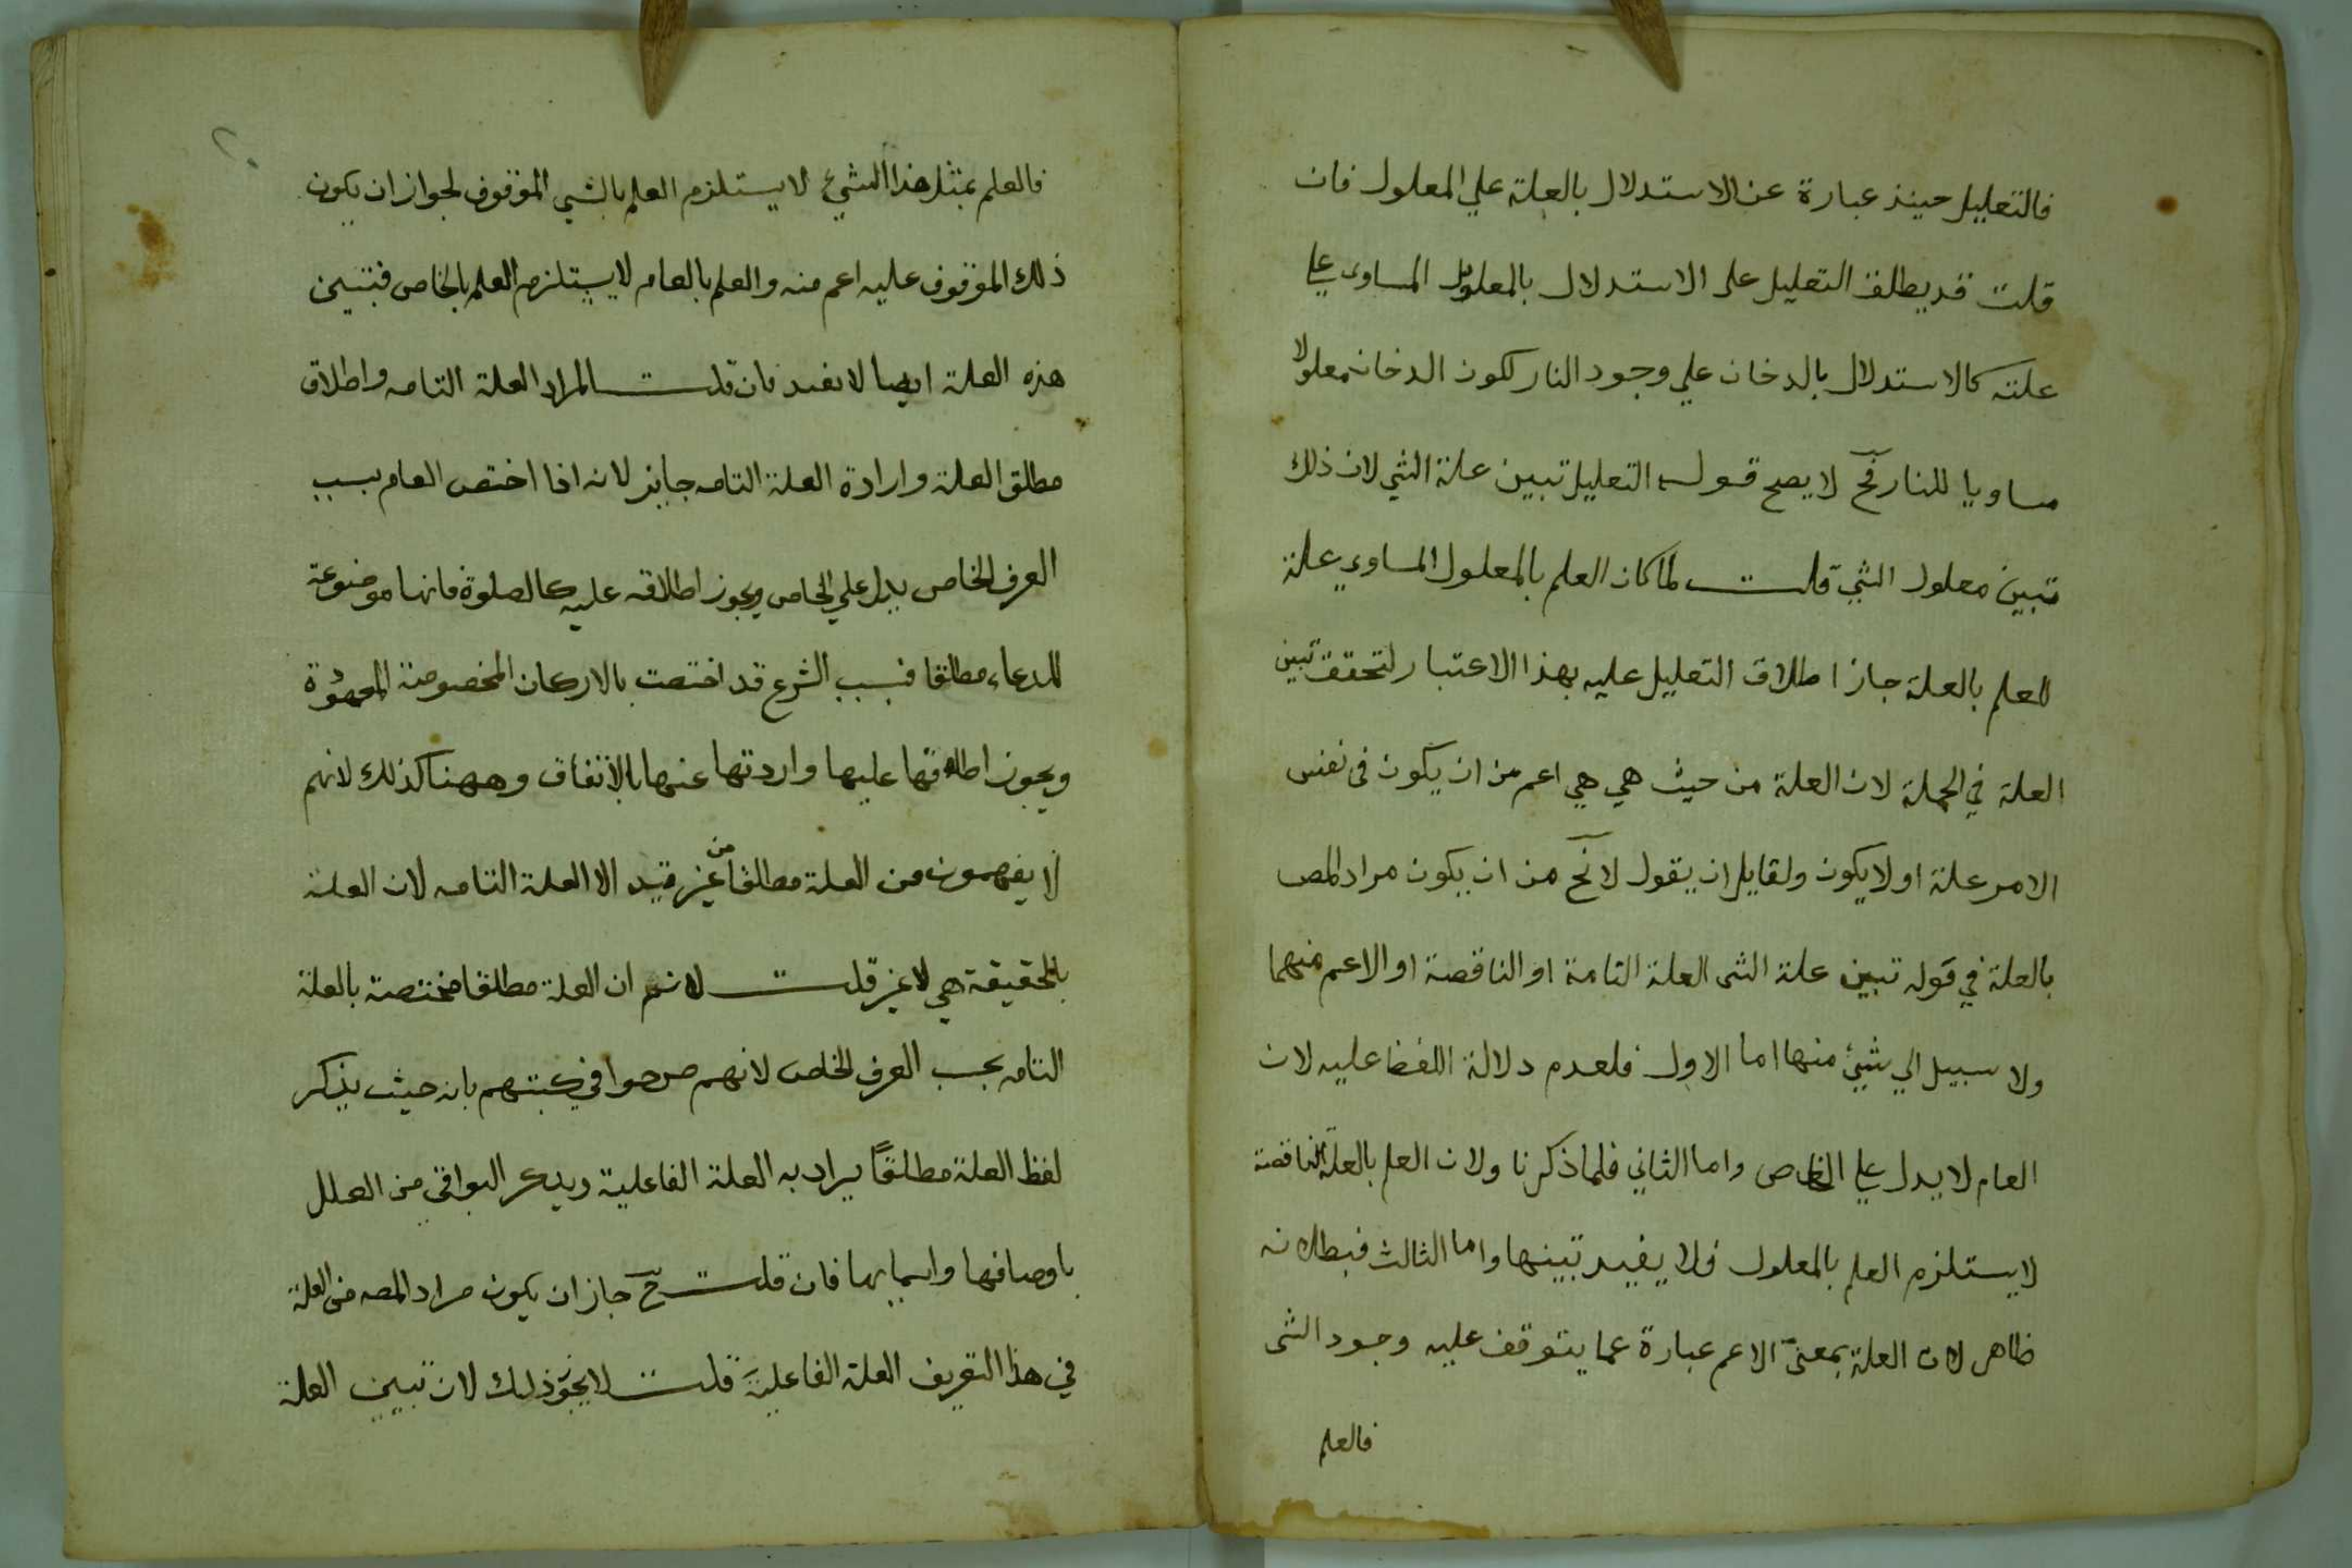 فالتعليل حينئذ عبارة عن الاستدلال بالعلة علي المعلول فان
قلت قد يطلق التعليل على الاستدلال بالمعلول المساوى علي
علته كالاستدلال بالدخان علي وجود النار لكون الدخان معلولا
مساويا للنار فح لا يصح قوله التعليل تبين علة الشي لان ذلك
تبين معلول الشي قلت لما كان العلم بالمعلول المساوي علة
للعلم بالعلة جاز اطلاق التعليل عليه بهذا الاعتبار لتحقق تبين
العلة في الجملة لان العلة من حيث هي هي اعم من ان يكون في نفس
الامر علة او لا يكون ولقايل ان يقول لا نح من ان يكون مراد المص
بالعلة في قوله تبين علة الشى العلة التامة او الناقصة او الاعم منهما
ولا سبيل الي شيئ منها اما الاول فلعدم دلالة اللفظ عليه لان
العام لا يدل علي الخاص واما الثاني فلما ذكرنا ولان العلم بالعلة الناقصة
لا يستلزم العلم بالمعلول فلا يفيد تبينها واما الثالث فبطلانه
ظاهر لان العلة بمعنى الاعم عبارة عما يتوقف عليه وجود الشى
فالعلم
٢٠
فالعلم بمثل هذا الشيئ لا يستلزم العلم بالشيى الموقوف لجواز ان يكون
ذلك الموقوف عليه اعم منه والعلم بالعام لا يستلزم العلم بالخاص فتبين
هذه العلة ايضا لا يفيد فان قلت المراد العلة التامه واطلاق
مطلق العلة وارادة العلة التامه جايز لانه اذا اختص العام بسبب
العرف الخاص يدل علي الخاص ويجوز اطلاقه عليه كالصلوة فانها موضوعة
للدعاء مطلقا فبسبب الشرع قد اختصت بالاركان المخصوصة المعهودة
ويجوز اطلاقها عليها وارادتها عنها بالاتفاق وههنا كذلك لانهم
لا يفهمون من العلة مطلقا من غير قيد الا العلة التامه لان العلة
بالحقيقة هي لا غير قلت لا نسلم ان العلة مطلقا مختصة بالعلة
التامه بحسب العرف الخاص لانهم صرحوا في كتبهم بان حيث يذكر
لفظ العلة مطلقًا يراد به العلة الفاعلية ويذكر البواقي من العلل
باوصافها واسمايها فان قلت ح جاز ان يكون مراد المصه من العلة
في هذا التعريف العلة الفاعلية قلت لا يجوز ذلك لان تبيين العلة